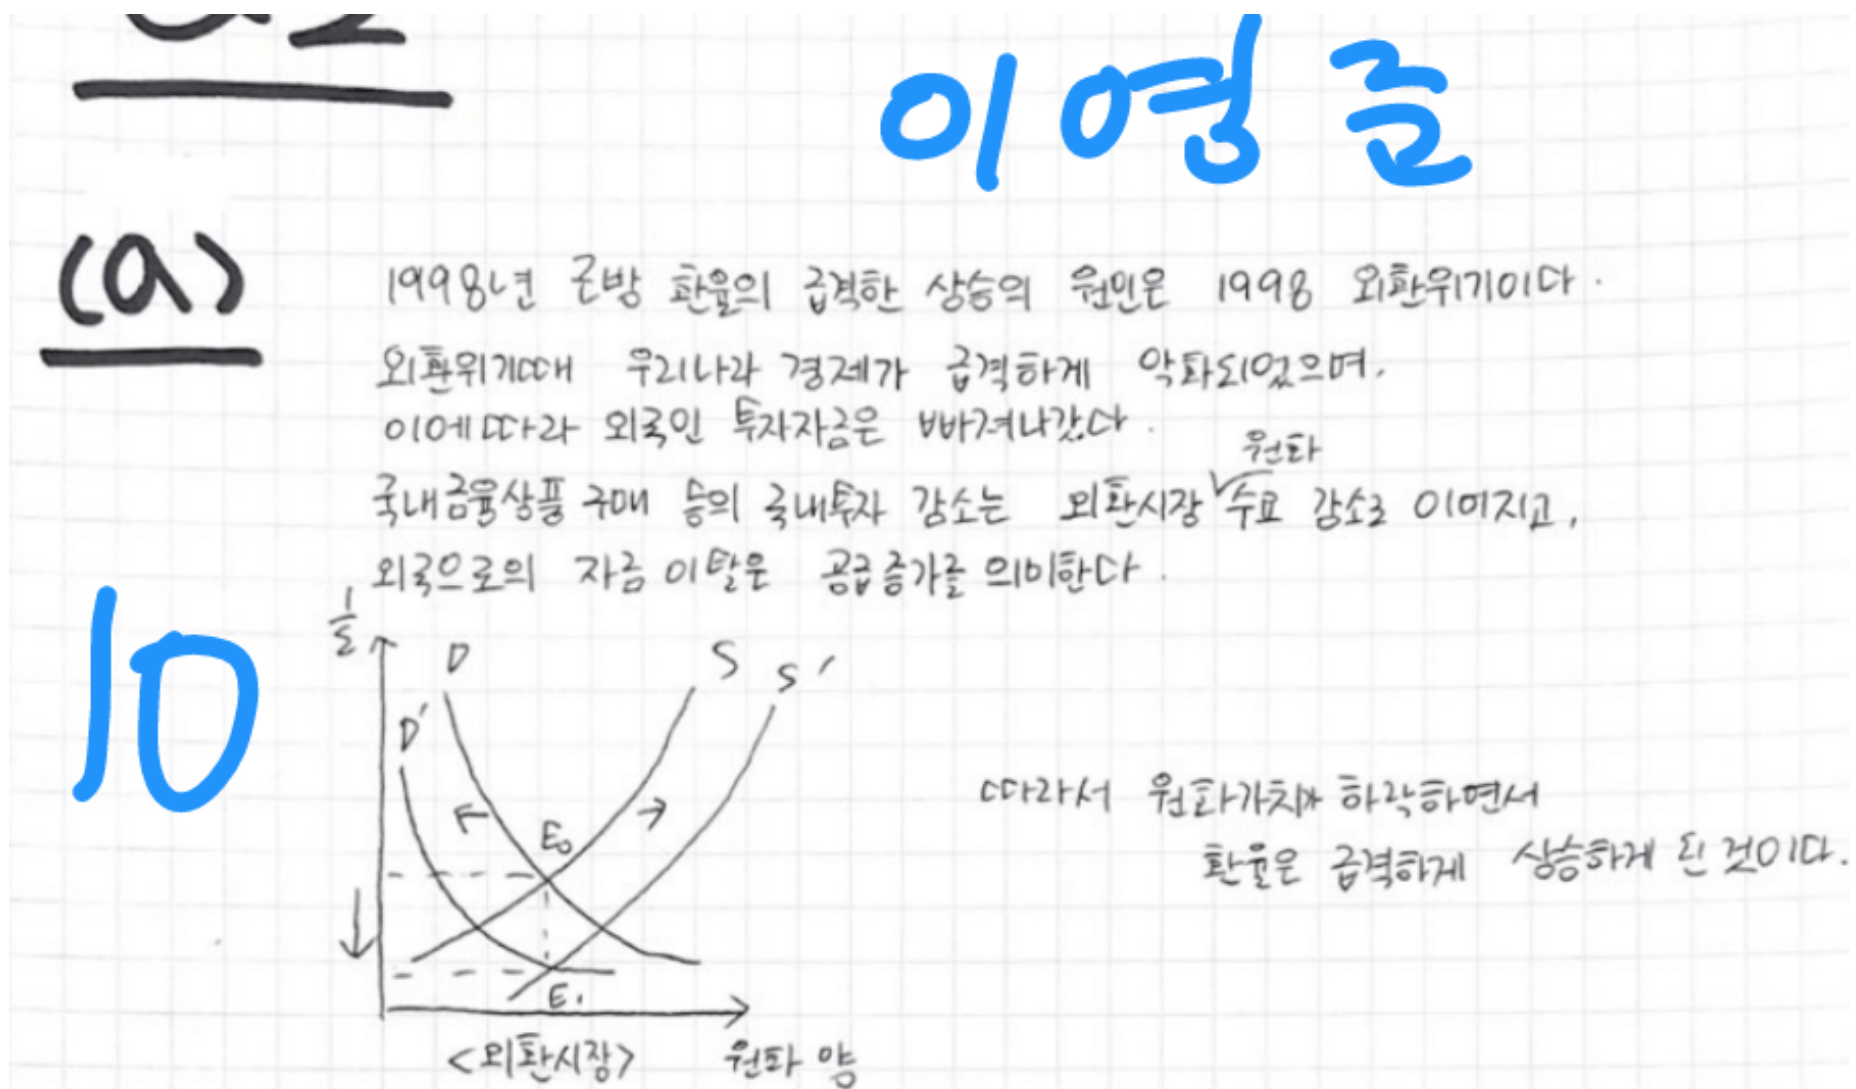 이영글
(a)
1998년 근방 환율의 급격한 상승의 원인은 1998 외환위기이다.
외환위기때 우리나라 경제가 급격하게 악화되었으며.
이에따라 외국인 투자자금은 빠져나갔다.
원화
국내금융상품 구매 등의 국내투자 감소는 외환시장 수요 감소로 이어지고,
외국으로의 자금 이탈은 공급증가를 의미한다.
10
D S S'
D'
E₀
E₁
따라서 원화가치가 하락하면서
환율은 급격하게 상승하게 된 것이다.
<외환시장> 원화 양